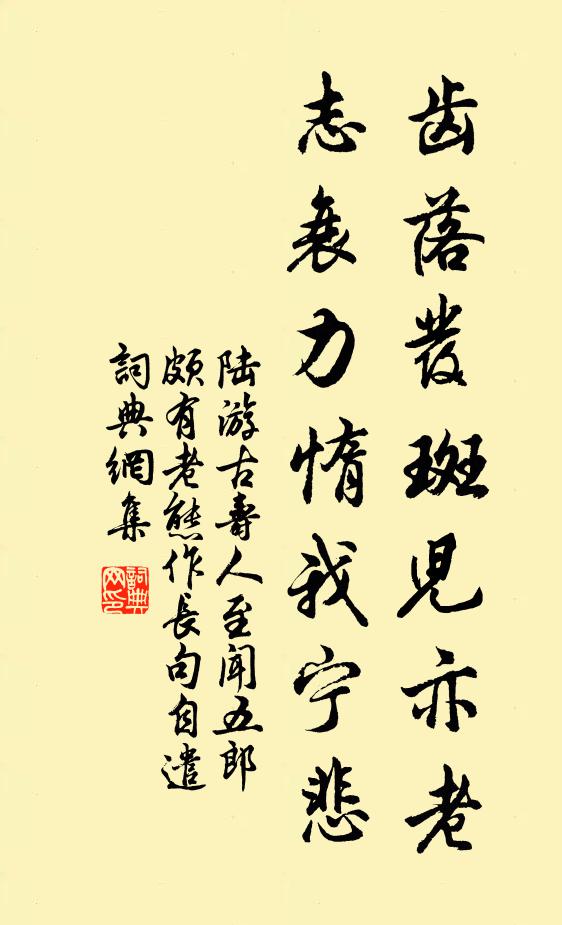 齿落發斑兒亦老
志衰力惰我宁悲
陆游古壽人至闻五郎
颇有老態作長句自遣
詞典網集
詞典网印